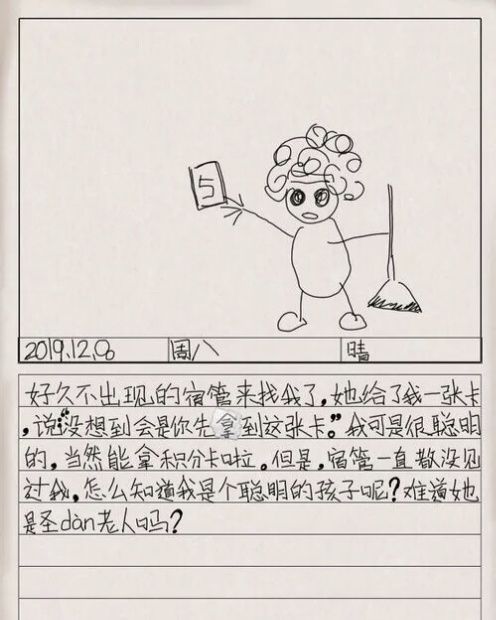 5
2019.12.06 周八 晴
好久不出现的宿管来找我了,她给了我一张卡
,说“没想到会是你先拿到这张卡。”我可是很聪明
的,当然能拿积分卡啦。但是,宿管一直散没见
过我,怎么知道我是个聪明的孩子呢?难道她
是圣dàn老人吗?